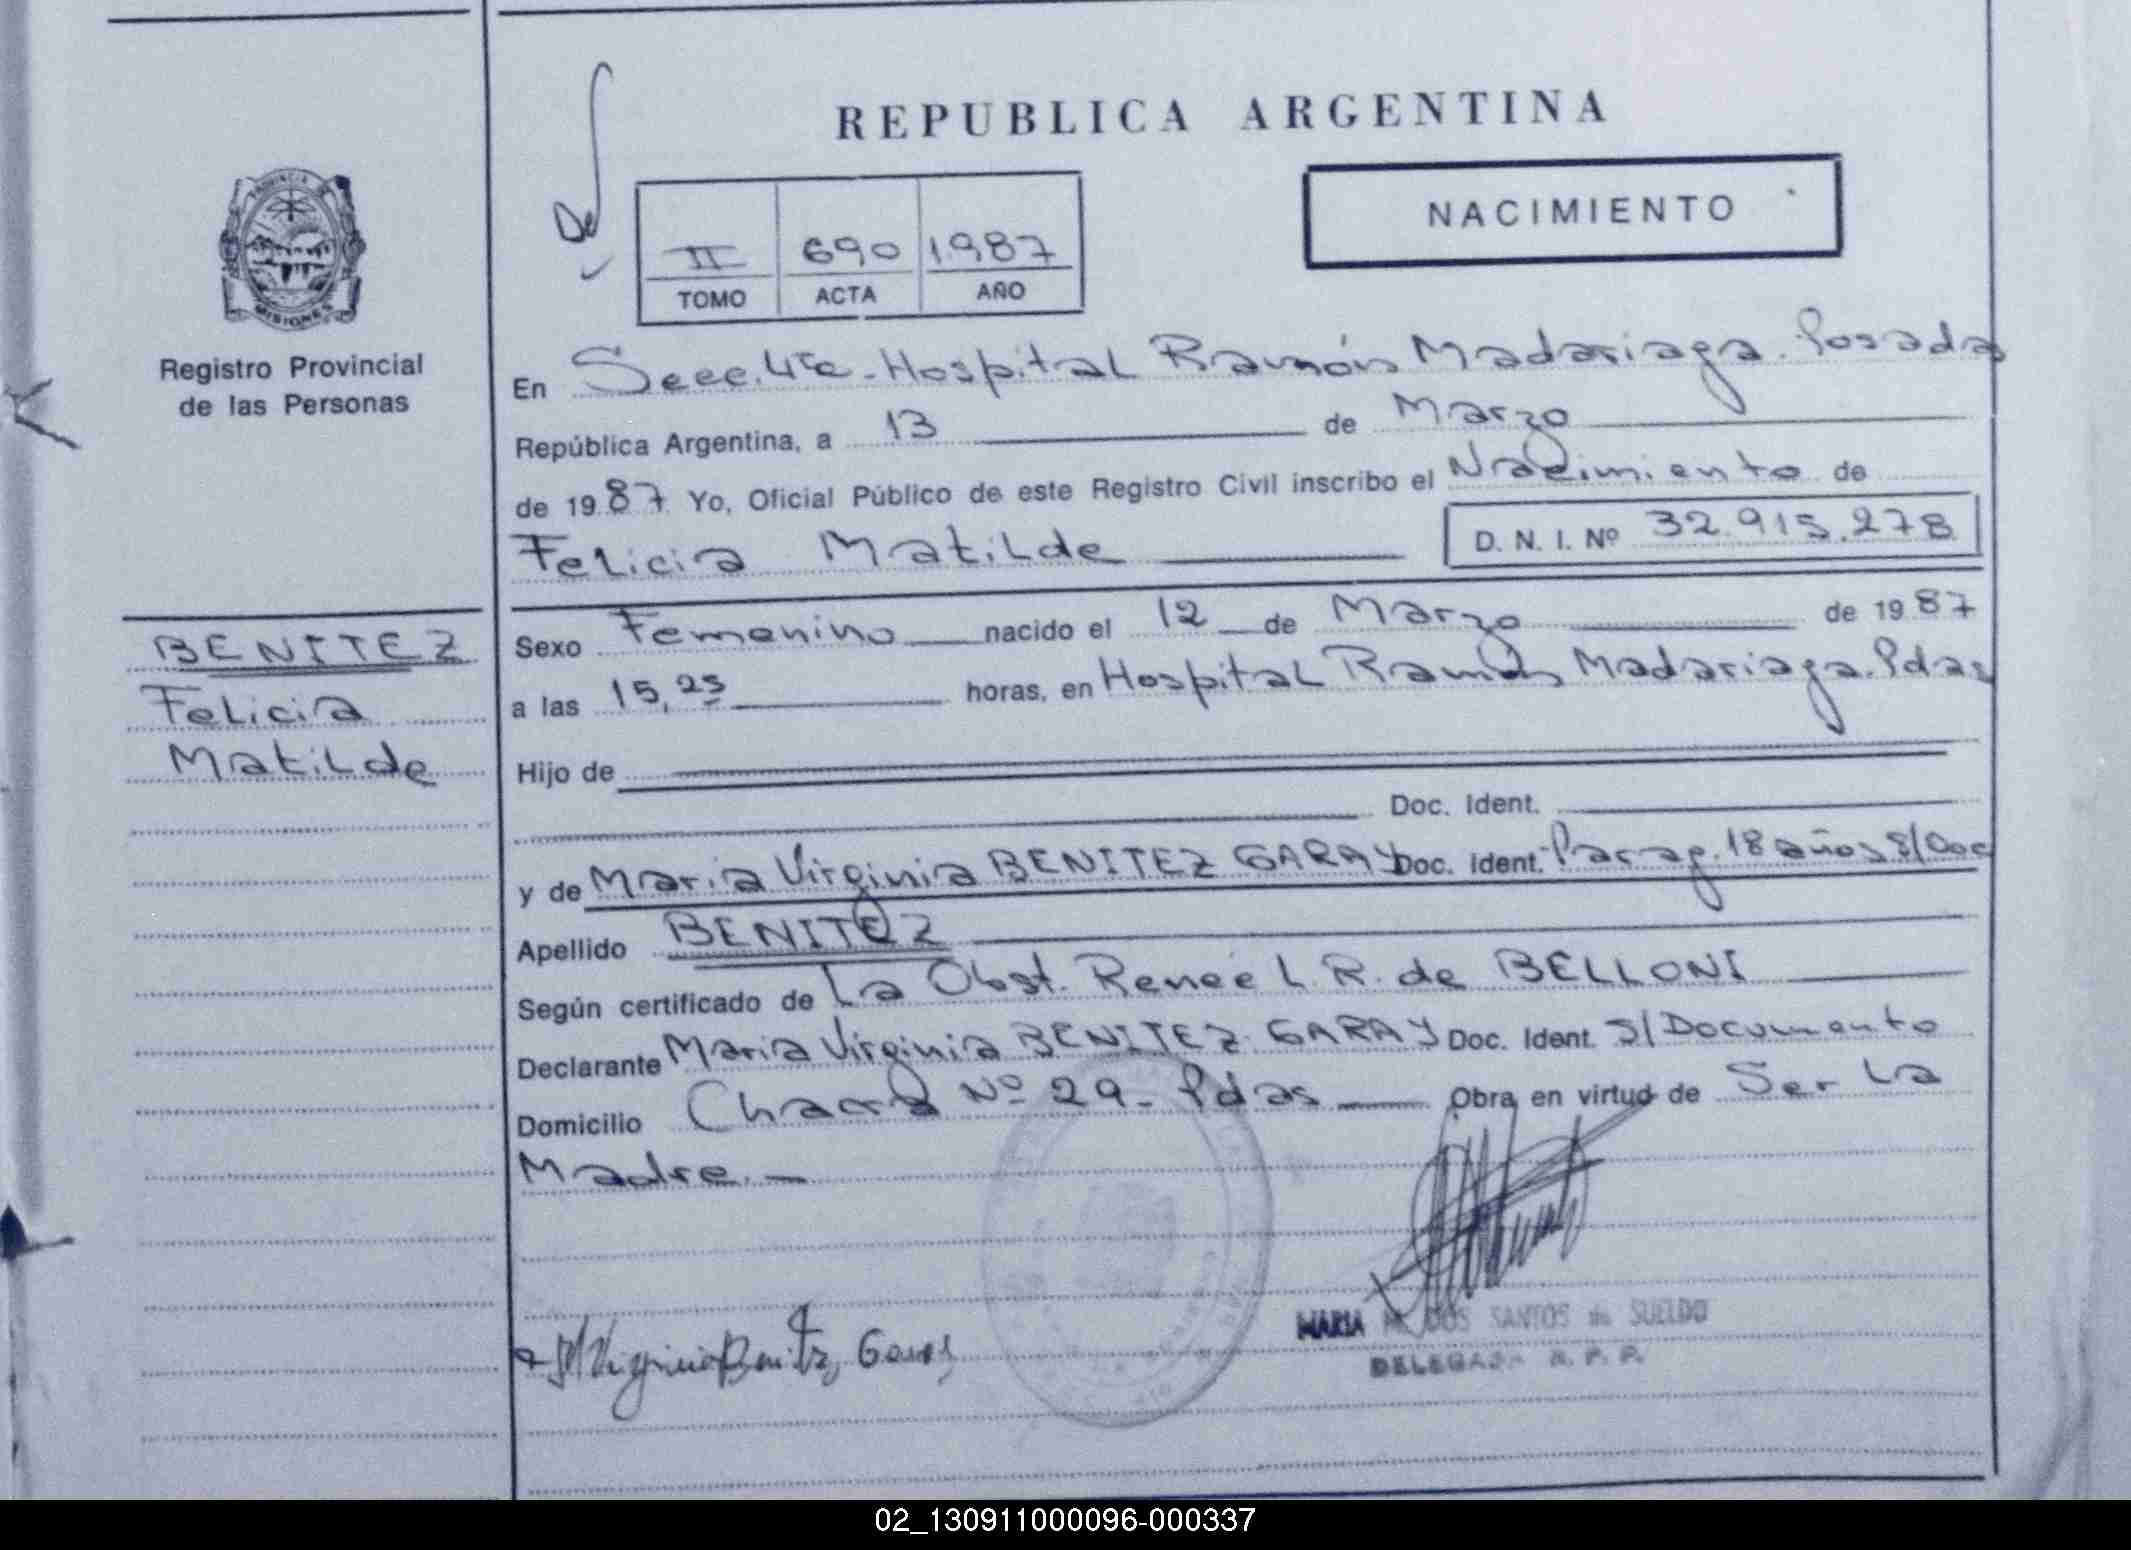 REPUBLICA ARGENTINA
NACIMIENTO
II 690 1987
TOMO ACTA AÑO
PROVINCIA DE
MISIONES
Registro Provincial
de las Personas
En Secc. 4ta - Hospital Ramón Madariaga. Posadas
República Argentina, a 13 de Marzo
de 1987 Yo, Oficial Público de este Registro Civil inscribo el Nacimiento de
Felicia Matilde D. N. I. Nº 32.915.278
BENITEZ
Felicia
Matilde
Sexo Femenino nacido el 12 de Marzo de 1987
a las 15,25 horas, en Hospital Ramón Madariaga. Pdas
Hijo de
Doc. Ident.
y de Maria Virginia BENITEZ GARAY Doc. Ident. Parag. 18 años S/Doc
Apellido BENITEZ
Según certificado de La Obst. Reneé L. R. de BELLONI
Declarante Maria Virginia BENITEZ GARAY Doc. Ident. S/Documento
Domicilio Chacra Nº 29 - Pdas Obra en virtud de Ser La
Madre. -
M Virginia Benitez Garay
MARIA DOS SANTOS de SUELDO
DELEGADA R. P. P.
02_130911000096-000337